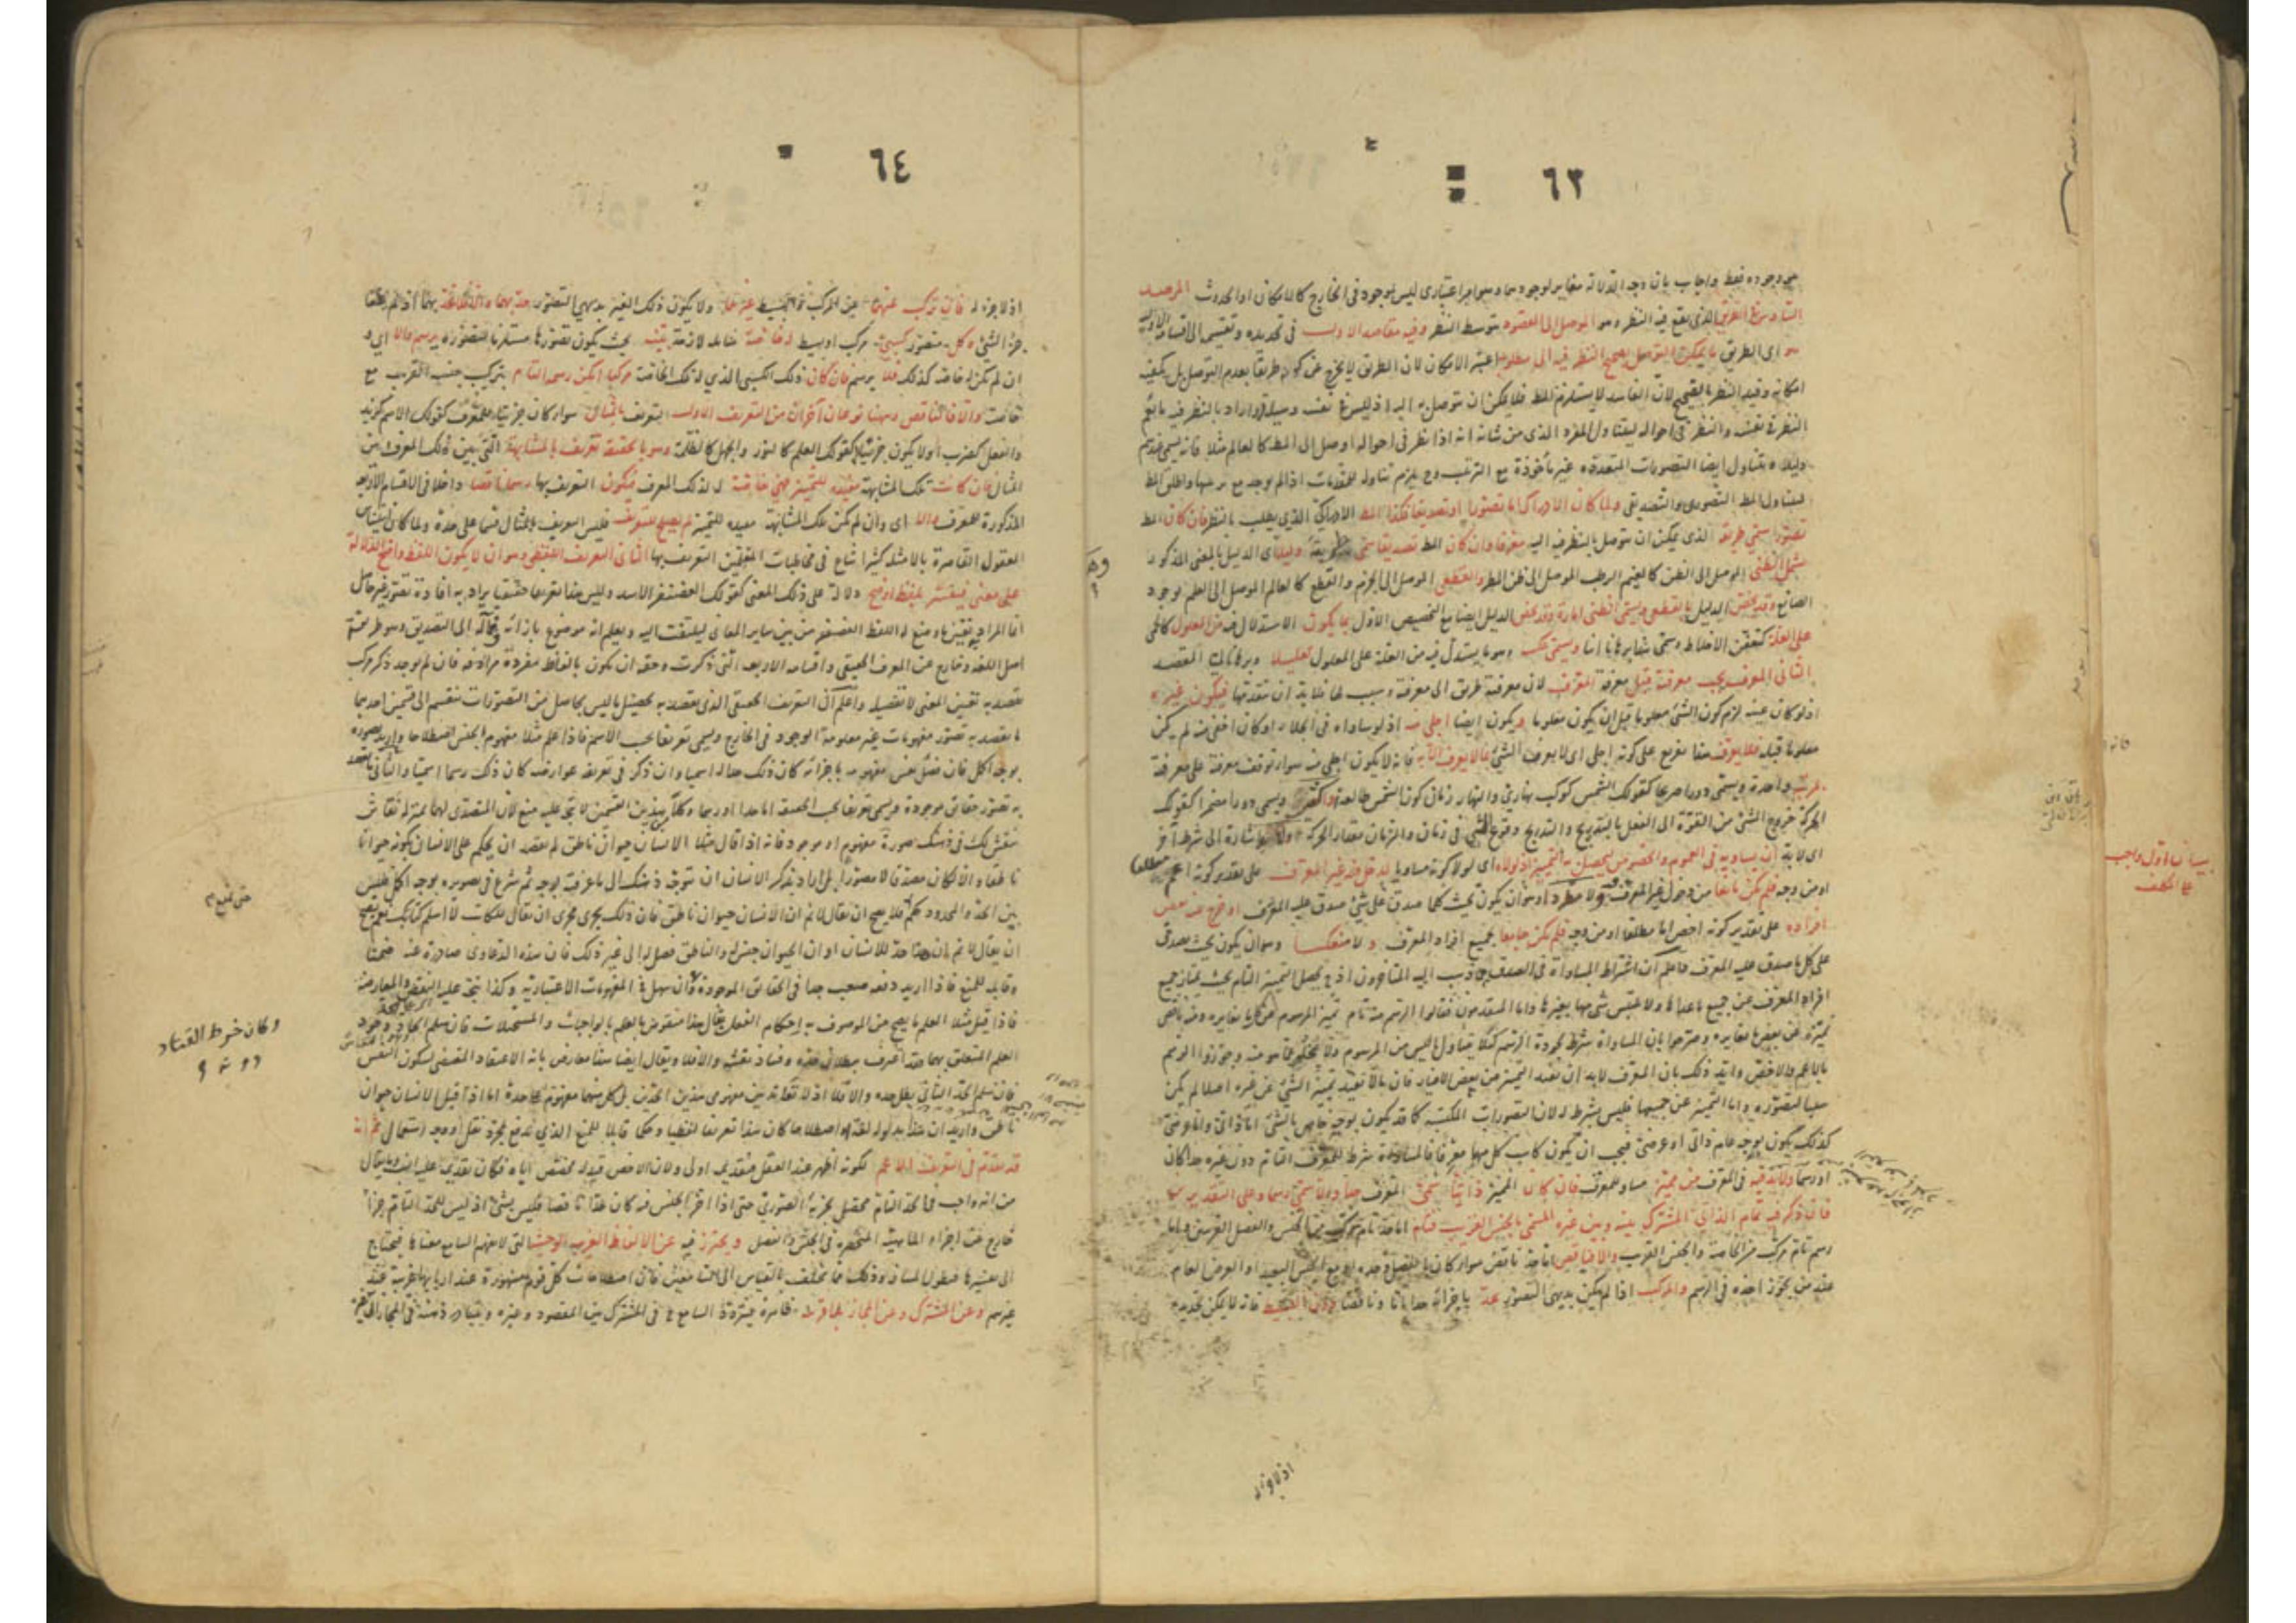 ٦٣
هي وجوده فقط واجاب بان وجه الدلالة مغاير لوجودهما وهو امر اعتباري ليس بموجود في الخارج كالامكان او الحدوث المرصد
السادس في الطريق الذي يقع فيه النظر وهو الموصل الى المقصود بتوسط النظر وفيه مقاصد الاول في تحديده وتقسيمه الى اقسامه الاولية
هو اي الطريق ما يمكن التوصل بصحيح النظر فيه الى مطلوب اعتبر الامكان لان الطريق لا يخرج عن كونه طريقا بعدم التوصل بل يكفيه
امكانه وقيد النظر بالصحيح لان الفاسد لا يستلزم المط فلا يمكن ان يتوصل به اليه اذ ليس في نفسه وسيلة واراد بالنظر فيه ما يعم
النظر في نفسه والنظر في احواله ليتناول المفرد الذي من شانه انه اذا نظر في احواله اوصل الى المط كالعالم مثلا فانه يسمى عندهم
دليلا ويتناول ايضا التصورات المتعددة غير مأخوذة مع الترتيب وح يلزم تناوله للمقدمات اذا لم يوجد مع ترتيبها واطلق المط
ليتناول المط التصوري والتصديقي ولما كان الادراك اما تصورا او تصديقا فكذا المط الادراكي الذي يطلب بالنظر فان كان المط
تصورا سمي طريقه الذي يمكن ان يتوصل بالنظر فيه اليه معرفا وان كان المط تصديقا سمي طريقه دليلا اي الدليل بالمعنى المذكور
يشمل الظني الموصل الى الظن كالغيم الرطب الموصل الى ظن المطر والقطعي الموصل الى الجزم والقطع كالعالم الموصل الى العلم بوجود
الصانع وقد يخص الدليل بالقطعي ويسمى الظني امارة وقد يخص الدليل ايضا مع التخصيص الاول بما يكون الاستدلال فيه من المعلول كالحمى
على العلة كتعفن الاخلاط ويسمى برهانا انيا ويسمى عكسه وهو ما يستدل فيه من العلة على المعلول تعليلا وبرهانا لميا المقصد
الثاني المعرف يجب معرفته قبل معرفة المعرف لان معرفته طريق الى معرفته وسبب لها فلا بد ان تتقدمها فيكون غيره
اذ لو كان عينه لزم كون الشئ معلوما قبل ان يكون معلوما ويكون ايضا اجلى منه اذ لو ساواه في الجلاء او كان اخفى منه لم يكن
معلوما قبله فلا يعرف هذا مفرع على كونه اجلى اي لا يعرف الشئ بما لا يعرف الا به فانه لا يكون اجلى منه سواء توقف معرفته على معرفته
بمرتبة واحدة ويسمى دورا صريحا كقولك الشمس كوكب نهاري والنهار زمان كون الشمس طالعة او اكثر ويسمى دورا مضمرا كقولك
الحركة خروج الشئ من القوة الى الفعل بالتدريج والتدريج وقوع الشئ في زمان والزمان مقدار الحركة ولا اشارة الى شرط آخر
اي لا بد ان يساويه في العموم والخصوص ليحصل به التميز اذ لولاه اي لولا كونه مساويا لدخل فيه غير المعرف على تقدير كونه اعم مطلقا
او من وجه فلم يكن مانعا من دخول غير المعرف ولا مطردا وهو ان يكون بحيث كلما صدق على شئ صدق عليه المعرف او خرج عنه بعض
افراده على تقدير كونه اخص اما مطلقا او من وجه فلم يكن جامعا لجميع افراد المعرف ولا منعكسا وهو ان يكون بحيث يصدق
على كل ما صدق عليه المعرف فاعلم ان اشتراط المساواة في الصدق مما ذهب اليه المتأخرون اذ ح يحصل التميز التام بحيث يمتاز جميع
افراد المعرف عن جميع ما عداها ولا يلتبس شئ منها بغيرها واما المتقدمون فقالوا الرسم منه تام يميز المرسوم عن كل ما يغايره ومنه ناقص
يميزه عن بعض ما يغايره وصرحوا بان المساواة شرط لجودة الرسم كيلا يتناول ما ليس من المرسوم ولا يخلو عما هو منه وجوزوا الرسم
بالاعم والاخص وايد ذلك بان المعرف لا بد ان يفيد التميز عن بعض الاغيار فان ما لا يفيد تميز الشئ عن غيره اصلا لم يكن
سببا لتصوره واما التميز عن جميعها فليس بشرط له لان التصورات المكتسبة كما قد يكون بوجه خاص بالشئ اما ذاتي واما عرضي
كذلك يكون بوجه عام ذاتي او عرضي فيجب ان يكون كاسب كل منها معرفا فالمساواة شرط للمعرف التام دون غيره حدا كان
او رسما ولا بد فيه في المعرف من مميز مساو للمعرف فان كان المميز ذاتيا سمي المعرف حدا والا سمي رسما وعلى التقديرين
فان ذكر فيه تمام الذاتي المشترك بينه وبين غيره المسمى بالجنس القريب فتام اما حد تام مركب من الجنس والفصل القريبين واما
رسم تام مركب من الخاصة والجنس القريب والا فناقص اما حد ناقص سواء كان بالفصل وحده او مع الجنس البعيد او العرض العام
عند من يجوز اخذه في الرسم والمركب اذا لم يكن بديهي التصور يحد باجزائه حدا تاما وناقصا دون البسيط فانه لا يمكن تحديده
بيان اول واجب
على المكلف
٦٤
اذ لا جزء له فان تركب عنهما عن المركب والبسيط غيرهما ولا يكون ذلك الغير بديهي التصور حد بهما والا فلا يحد بهما اذ لم يقعا
جزء الشئ وكل متصور كسبي مركب او بسيط له خاصة شاملة لازمة بينة بحيث يكون تصورها مستلزما لتصوره يرسم والا اي و
ان لم يكن له خاصة كذلك فلا يرسم فان كان ذلك الكسبي الذي له تلك الخاصة مركبا امكن رسمه التام بتركيب جنسه القريب مع
خاصته والا فالناقص وههنا نوعان آخران من التعريف الاول التعريف بالمثال سواء كان جزئيا للمعرف كقولك الاسم كزيد
والفعل كضرب او لا يكون جزئيا له كقولك العلم كالنور والجهل كالظلمة وهو بالحقيقة تعريف بالمشابهة التي بين ذلك المعرف وبين
المثال فان كانت تلك المشابهة مفيدة للتميز فهي خاصة لذلك المعرف فيكون التعريف بها رسما ناقصا داخلا في الاقسام الاربعة
المذكورة للمعرف والا اي وان لم يكن تلك المشابهة مفيدة للتميز لم يصلح للتعريف فليس التعريف بالمثال قسما على حدة ولما كان استيناس
العقول القاصرة بالامثلة كثيرا شاع في مخاطبات المتعلمين التعريف بها الثاني التعريف اللفظي وهو ان لا يكون اللفظ واضح الدلالة
على معنى فيفسر بلفظ اوضح دلالة على ذلك المعنى كقولك الغضنفر الاسد وليس هذا تعريفا حقيقيا يراد به افادة تصور غير حاصل
انما المراد تعيين ما وضع له اللفظ الغضنفر من بين سائر المعاني ليلتفت اليه ويعلم انه موضوع بازائه فمآله الى التصديق وهو طريقة
اهل اللغة وخارج عن المعرف الحقيقي واقسامه الاربعة التي ذكرت وحقه ان يكون بالفاظ مفردة مرادفة فان لم يوجد ذكر مركب
يقصد به تعيين المعنى لا تفصيله واعلم ان التعريف الحقيقي الذي يقصد به تحصيل ما ليس بحاصل من التصورات ينقسم الى قسمين احدهما
ما يقصد به تصور مفهومات غير معلومة الوجود في الخارج ويسمى تعريفا بحسب الاسم فاذا علم مثلا مفهوم الجنس اصطلاحا واريد تصوره
بوجه اكمل فان فصل نفس مفهومه باجزائه كان ذلك حدا له اسميا وان ذكر في تعريفه عوارضه كان ذلك رسما اسميا والثاني ما يقصد
به تصور حقائق موجودة ويسمى تعريفا بحسب الحقيقة اما حدا او رسما وكلا هذين القسمين لا يتجه عليه منع لان المتصدي لهما بمنزلة نقاش
ينقش لك في ذهنك صورة مفهوم او موجود فانه اذا قال مثلا الانسان حيوان ناطق لم يقصد ان يحكم على الانسان بكونه حيوانا
ناطقا والا لكان مصدقا لا مصورا بل اراد بذكر الانسان ان يتوجه ذهنك الى ما عرفته بوجه ثم شرع في تصويره بوجه اكمل فليس
بين الحد والمحدود حكم فلا يصح ان يقال لا نم ان الانسان حيوان ناطق فان ذلك يجري مجرى ان يقال للكاتب لا اسلم كتابتك نعم يصح
ان يقال لا نم ان هذا حد للانسان او ان الحيوان جنس له والناطق فصل له الى غير ذلك فان هذه الدعاوى صادرة عنه ضمنا
وقابلة للمنع فاذا اريد دفعه صعب جدا في الحقائق الموجودة وان سهل في المفهومات الاعتبارية وكذا يتجه عليه النقض والمعارضة
فاذا قيل مثلا العلم ما يصح من الموصوف به احكام الفعل يقال هذا منقوض بالعلم بالواجبات والمستحيلات فان سلم الحاد وجود
العلم المتعلق بهما فقد اعترف ببطلان حده وفساد نقشه والا فلا ويقال ايضا هذا معارض بانه الاعتقاد المقتضي لسكون النفس
فان سلم الحد الثاني بطل حده والا فلا اذ لا تعاند بين مفهومي هذين الحدين بل كل منهما مفهوم على حدة اما اذا قيل الانسان حيوان
ناطق واريد ان هذا مدلوله لغة او اصطلاحا كان هذا تعريفا لفظيا وحكما قابلا للمنع الذي يدفع بمجرد نقل او وجه استعمال ثم انه
قد يقدم في التعريف الاعم لكونه اظهر عند العقل فتقديمه اولى ولان الاخص قيد له مخصص اياه فكان تقديمه عليه انسب وما يقال
من انه واجب في الحد التام ليحصل به جزؤه الصوري حتى اذا اخر الجنس فيه كان حدا ناقصا فليس بشئ اذ ليس للحد التام جزء
خارج عن اجزاء الماهية المنحصرة في الجنس والفصل ويحترز فيه عن الالفاظ الغريبة الوحشية التي لا يفهم السامع معناها فيحتاج
الى تفسيرها فيطول المسافة وذلك مما يختلف بالقياس الى السامعين فان اصطلاحات كل قوم مشهورة عند اربابها غريبة عند
غيرهم وعن المشترك وعن المجاز بلا قرينة ظاهرة فيتردد السامع في المشترك بين المقصود وغيره ويتبادر ذهنه في المجاز الى غيره
وكان خرط القتاد
دونه
اذ لا جزء له